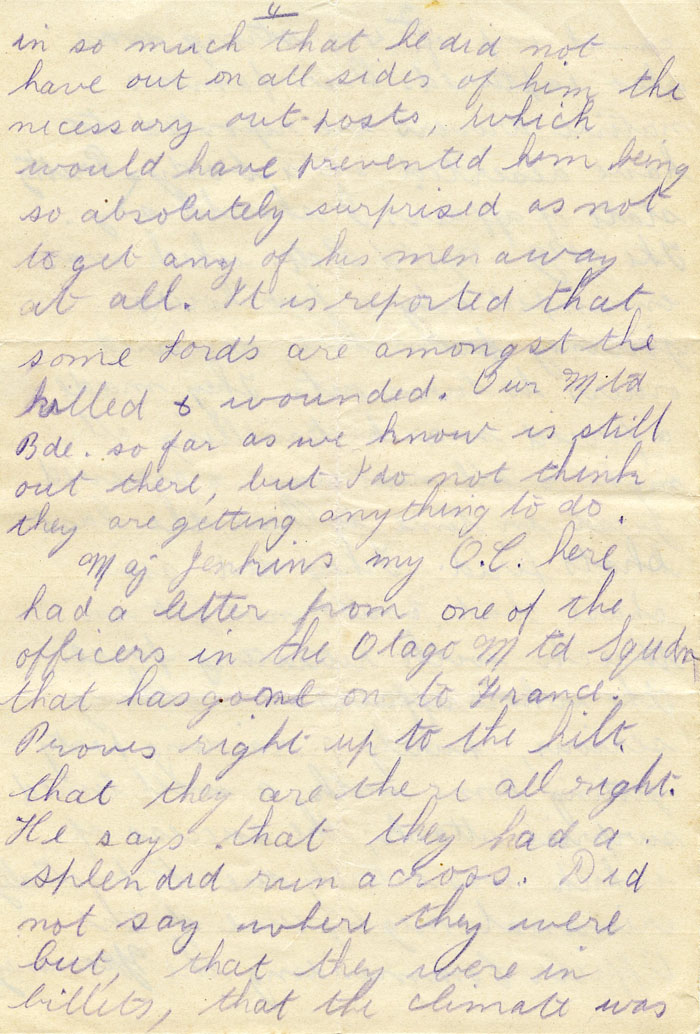 4
in so much that he did not
have out on all sides of him the
necessary out-posts, which
would have prevented him being
so absolutely surprised as not
to get any of his men away
at all. It is reported that
some Lord's are amongst the
killed & wounded. Our Mtd
Bde. so far as we know is still
out there, but I do not think
they are getting anything to do.
Maj Jenkins my O.C. here
had a letter from one of the
officers in the Otago Mtd Squdn
that has gone on to France.
Proves right up to the hilt.
that they are there all right.
He says that they had a
splendid run across. Did
not say where they were
but, that they were in
billets, that the climate was